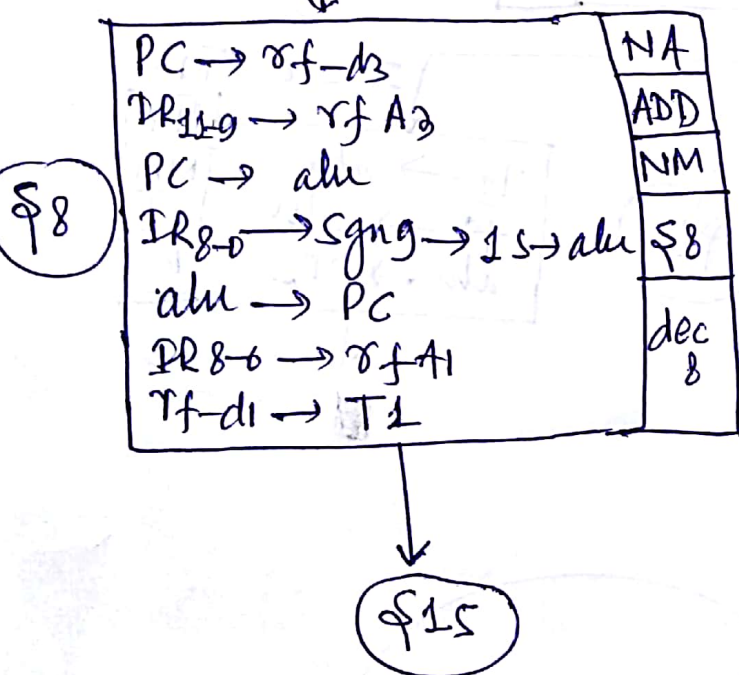 PC → rf-d3
IR11-9 → rf A3
PC → alu
IR8-0 → Sgn9 → 15 → alu
alu → PC
IR 8-6 → rf A1
rf-d1 → T1
NA
ADD
NM
S8
dec
8
S8
S15